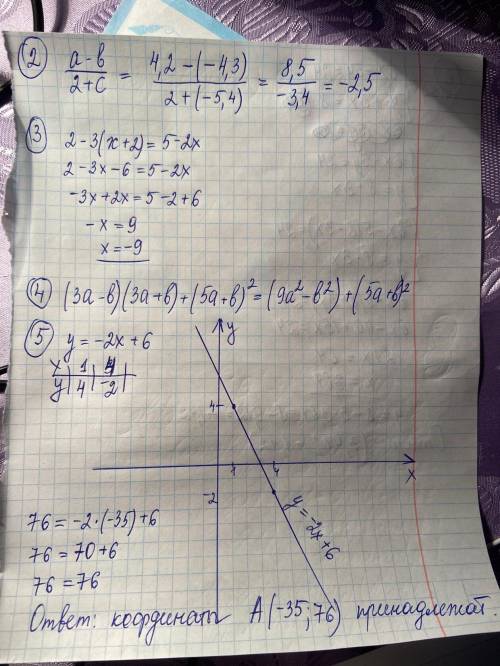 ② a-b / 2+c = 4,2-(-4,3) / 2+(-5,4) = 8,5 / -3,4 = -2,5
③ 2-3(x+2)=5-2x
2-3x-6=5-2x
-3x+2x=5-2+6
-x=9
x=-9
④ (3a-b)(3a+b)+(5a+b)²=(9a²-b²)+(5a+b)²
⑤ y=-2x+6
x | 1 | 4
y | 4 | -2
y
4
1 4
x
-2
y=-2x+6
76=-2·(-35)+6
76=70+6
76=76
Ответ: координаты A(-35;76) принадлежат.